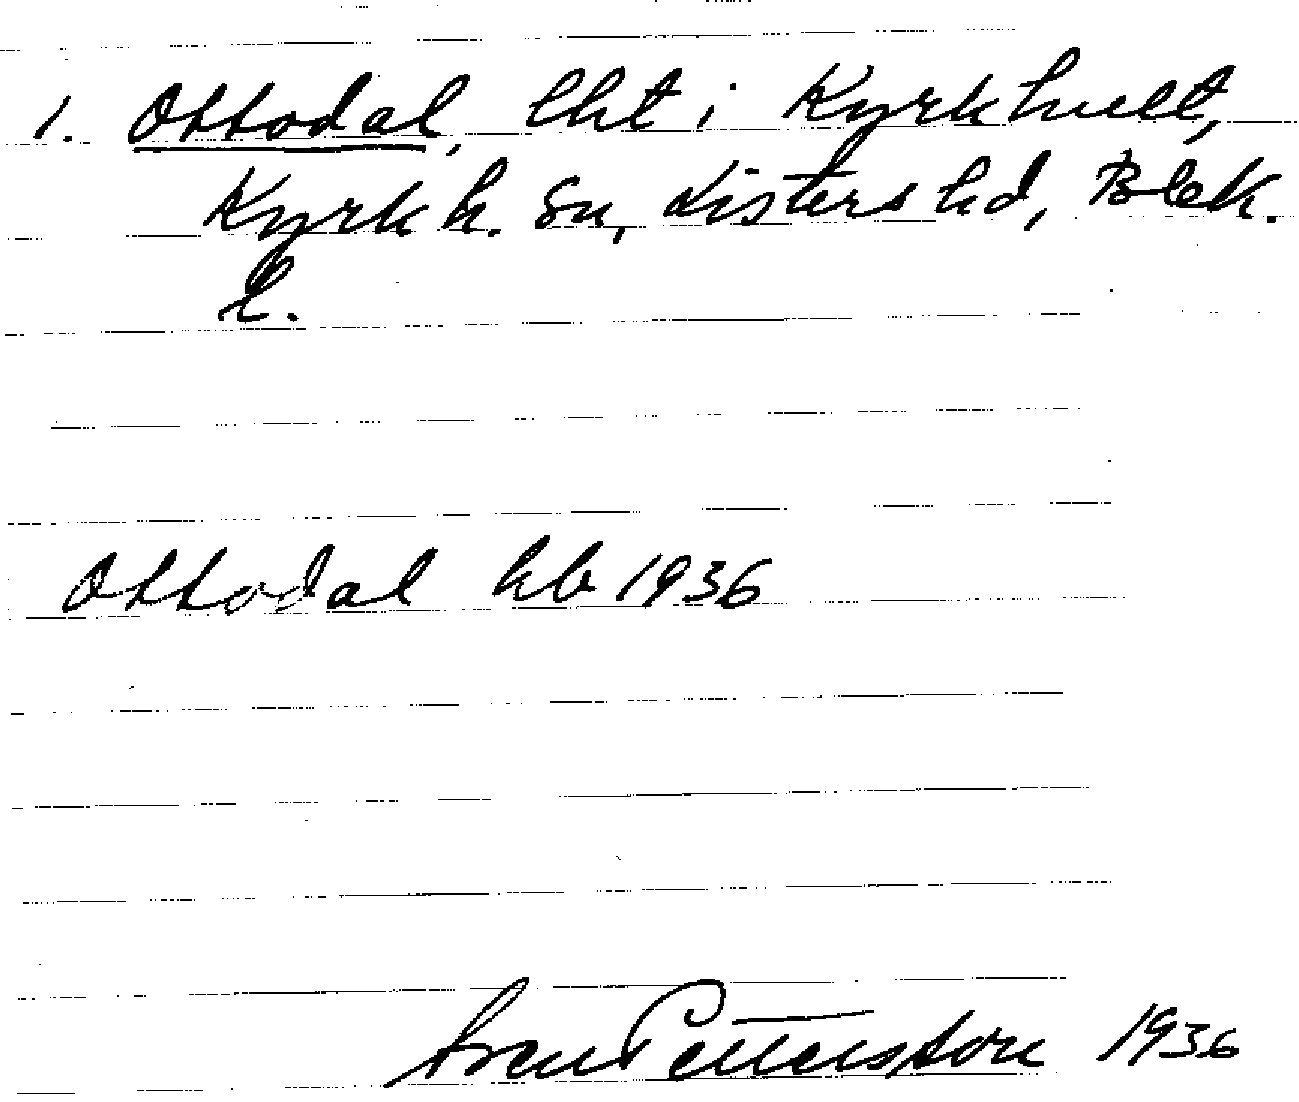 1. Ottodal, lht i Kyrkhult,
Kyrkh. sn, Listers hd, Blek.
l.
Ottodal kb 1936
Sven Pettersson 1936